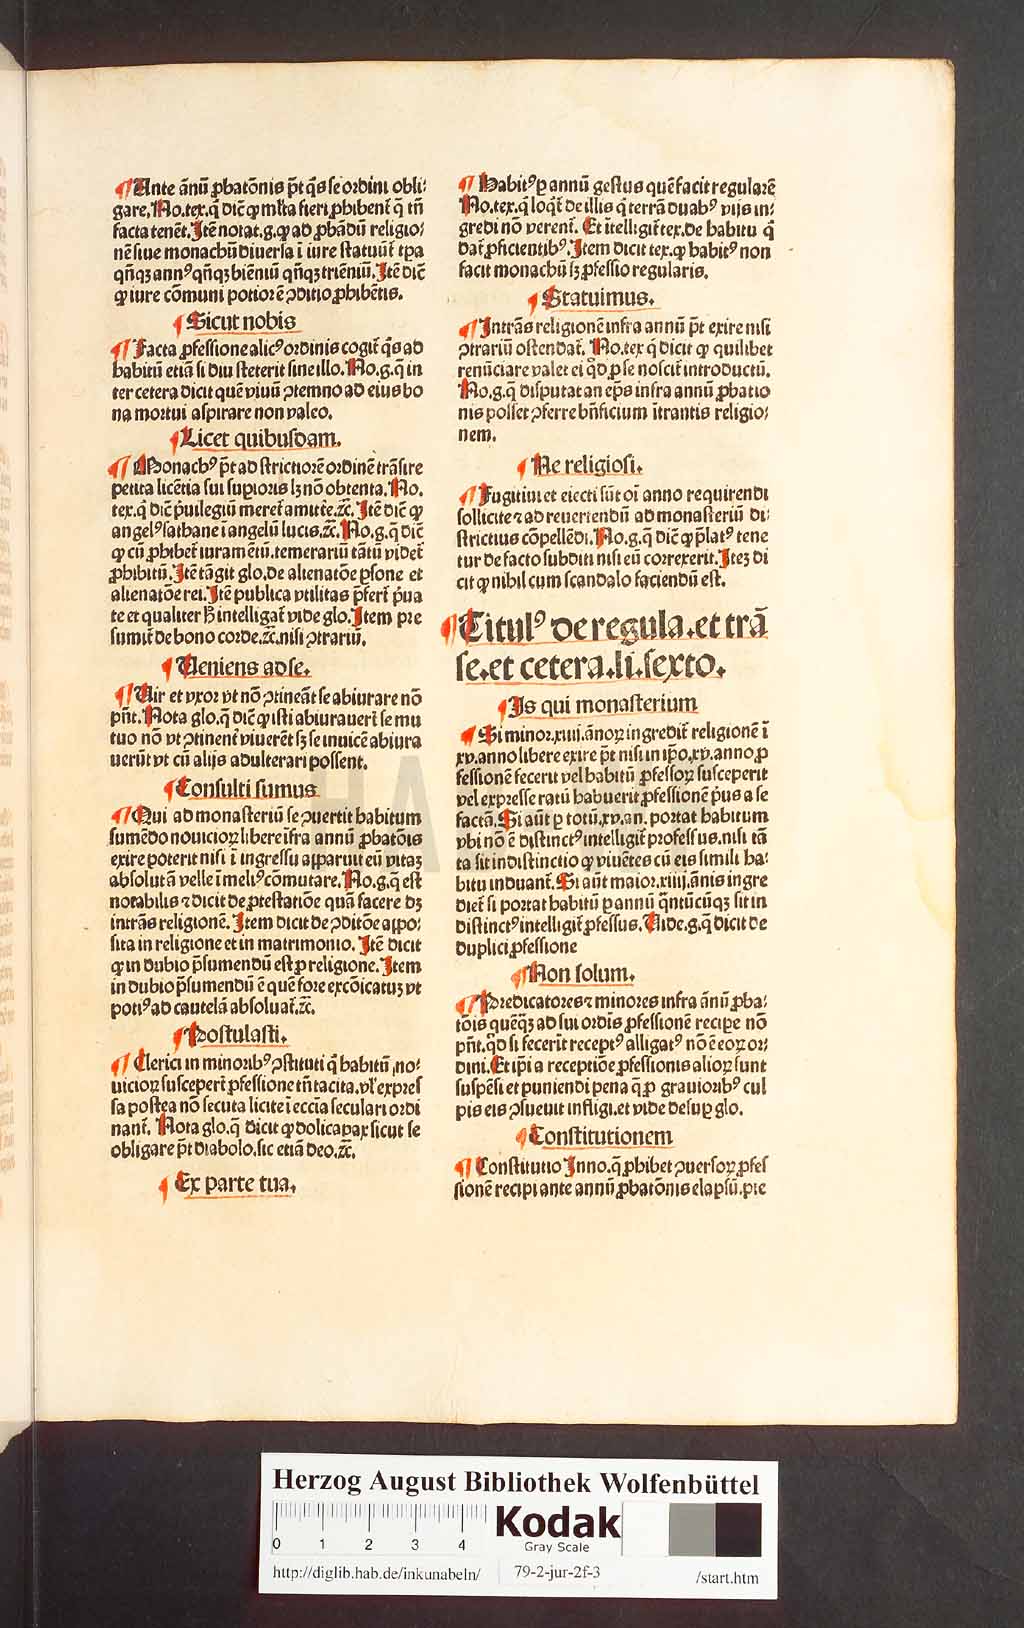 ¶Ante ãnũ ꝓbatõnis p̃t q̃s se ordini obli⸗
gare. No.tex.q̃ dic̃ ꝙ ml̃ta fieri ꝓhibent̃ q̃ tñ
facta tenẽt. Itẽ notat.g.ꝙ ad ꝓbãdũ religio⸗
nẽ siue monachũ diuersa ĩ iure statuũt̃ tp̃a
qñqꝫ annꝰ qñqꝫ biẽniũ qñqꝫ triẽniũ. Itẽ dic̃
ꝙ iure cõmuni potior ẽ ꝯditio ꝓhibẽtis.
¶Sicut nobis
¶Facta ꝓfessione alicꝰ ordinis cogit̃ q̃s ad
habitũ etiã si diu steterit sine illo. No.g.q̃ in
ter cetera dicit quẽ viuũ ꝯtemno ad eius bo
na mortui aspirare non valeo.
¶Licet quibusdam.
¶Monachꝰ p̃t ad strictiorẽ ordinẽ trãsire
petita licẽtia sui sup̲ioris lꝫ nõ obtenta. No.
tex.q̃ dic̃ p̃uilegiũ meret̃ amitte.ꝛc̃. Itẽ dic̃ ꝙ
angelꝰ sathane ĩ angelũ lucis.ꝛc̃. No.g.q̃ dic̃
ꝙ cũ ꝓhibet̃ iuramẽtũ.temerariũ tãtũ videt̃
ꝓhibitũ. Itẽ tãgit glo.de alienatõe p̲sone et
alienatõe rei. Itẽ publica vtilitas p̃fert̃ p̃ua
te et qualiter h̃ intelligat̃ vide glo. Item pre
sumit̃ de bono corde.ꝛc̃.nisi ꝯtrariũ.
¶Veniens ad se.
¶Vir et vxor vt nõ ꝯtineãt se abiurare nõ
pñt. Nota glo.q̃ dic̃ ꝙ isti abiurauerũt se mu
tuo nõ vt ꝯtinent̃ viuerẽt sꝫ se inuicẽ abiura
uerũt vt cũ alijs adulterari possent.
¶Consulti sumus
¶Qui ad monasteriũ se ꝯuertit habitum
sumẽdo nouicioꝝ libere ĩfra annũ ꝓbatõis
exire poterit nisi ĩ ingressu apparuit eũ vitaꝫ
absolutã velle ĩ meliꝰ cõmutare. No.g.q̃ est
notabilis ⁊ dicit de ꝓtestatiõe quã facere dꝫ
intrãs religionẽ. Item dicit de ꝯditõe appo⸗
sita in religione et in matrimonio. Itẽ dicit
ꝙ in dubio p̃sumendũ est ꝓ religione. Item
in dubio p̃sumendũ ẽ quẽ fore excõicatuꝫ vt
potiꝰ ad cautelã absoluat̃.ꝛc̃.
¶Postulasti.
¶Clerici in minoribꝰ ꝯstituti q̃ habitũ no⸗
uicioꝝ susceper̃t ꝓfessione tñ tacita.vl̃ expres
sa postea nõ secuta licite ĩ eccĩa seculari ordi
nant̃. Nota glo.q̃ dicit ꝙ doli capax sicut se
obligare p̃t diabolo.sic etiã deo.ꝛc̃.
¶Ex parte tua.
¶Habitꝰ p̲ annũ gestus quẽ facit regularẽ
No.tex.q̃ loqt̃ de illis q̃ terrã duabꝰ vijs in⸗
gredi nõ verent̃. Et ĩtelligit̃ tex.de habitu q̃
dat̃ ꝓficientibꝰ. Item dicit tex.ꝙ habitꝰ non
facit monachũ sꝫ ꝓfessio regularis.
¶Statuimus.
¶Intrãs religionẽ infra annũ p̃t exire nisi
ꝯtrariũ ostendat̃. No.tex q̃ dicit ꝙ quilibet
renũciare valet ei qd̃ ꝓ se noscit̃ introductũ.
No.g.q̃ disputat an ep̃s infra annũ ꝓbatio
nis posset ꝯferre bñficium ĩtrantis religio⸗
nem.
¶Ne religiosi.
¶Fugitiui et eiecti sũt oĩ anno requirendi
sollicite ⁊ ad reuertendũ ad monasteriũ di⸗
strictius cõpellẽdi. No.g.q̃ dic̃ ꝙ p̃latꝰ tene
tur de facto subditi nisi eũ correxerit. Iteꝫ di
cit ꝙ nihil cum scandalo faciendũ est.
¶Titulꝰ de regula.et trã
se.et cetera.li.sexto.
¶Is qui monasterium
¶Si minor.xiiij.ãnoꝝ ingredit̃ religionẽ ĩ
xv.anno libere exire p̃t nisi in ip̃o.xv.anno ꝓ
fessionẽ fecerit vel habitũ ꝓfessoꝝ susceperit
vel expresse ratũ habuerit ꝓfessionẽ p̃us a se
factã. Si aũt p̲ totũ.xv.an. portat habitum
vbi nõ ẽ distinctꝰ intelligit̃ professus.nisi tã
ta sit indistinctio ꝙ viuẽtes cũ eis simili ha⸗
bitu induant̃. Si aũt maior.xiiij.ãnis ingre
diet̃ si portat habitũ p̲ annũ q̃ntũcũqꝫ sit in
distinctꝰ intelligit̃ ꝓfessus. Vide.g.q̃ dicit de
duplici ꝓfessione
¶Non solum.
¶Predicatores ⁊ minores infra ãnũ ꝓba⸗
tõis quẽqꝫ ad sui ordĩs ꝓfessionẽ recipe nõ
pñt.qd̃ si fecerit receptꝰ alligatꝰ nõ ẽ eoꝝ or⸗
dini. Et ip̃i a receptiõe ꝓfessionis alioꝝ sunt
suspẽsi et puniendi pena q̃ ꝓ grauioribꝰ cul
pis eis ꝯsueuit infligi.et vide desup̲ glo.
¶Constitutionem
¶Constitutio Inno.q̃ ꝓhibet ꝯuersoꝝ ꝓfes
sionẽ recipi ante annũ ꝓbatõnis elapsũ.pre
Herzog August Bibliothek Wolfenbüttel
0 1 2 3 4
Kodak
Gray Scale
http://diglib.hab.de/inkunabeln/ 79-2-jur-2f-3 /start.htm